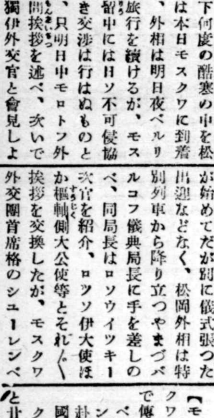 下何度の酷寒の中を松
は本日モスクワに到着
、外相は明日夜ベルリ
旅行を續けるが、モス
留中には日ソ不可侵協
き交渉は行はぬものと
、只明日中モロトフ外
問挨拶を述べ、次いで
獨伊外交官と會見しよ
が始めてだが別に儀式張つた
出迎などなく、松岡外相は特
別列車から降り立つやまづバ
ルコフ儀典局長に手を差しの
べ、同局長はロソウイツキー
次官を紹介、ロツソ伊大使ほ
か樞軸側大公使等とそれ〴〵
挨拶を交換したが、モスクワ
外交團首席格のシューレンベ
【モ
クワ
で傳
べ
赴
國
と北